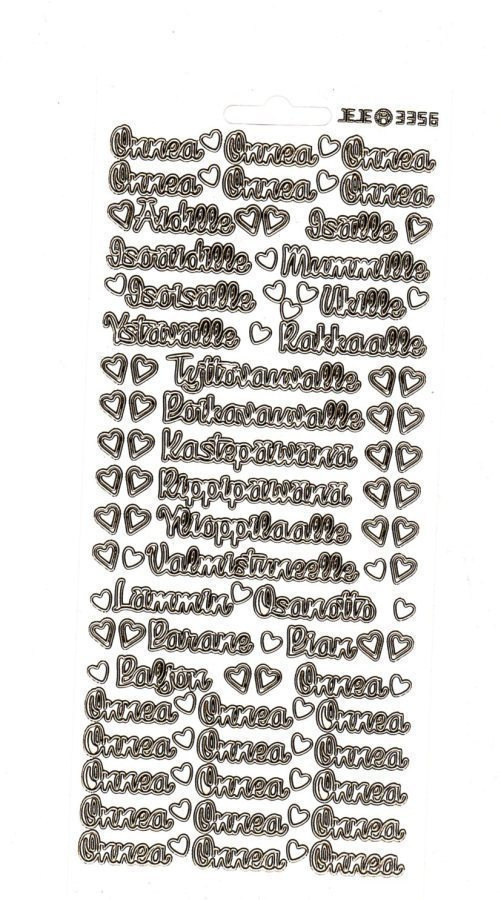 JEJE 3356
Onnea Onnea Onnea
Onnea Onnea Onnea
Äidille Isälle
Isoäidille Mummille
Isoisälle Ukille
Ystävälle Rakkaalle
Tyttövauvalle
Poikavauvalle
Kastepäivänä
Rippipäivänä
Ylioppilaalle
Valmistuneelle
Lämmin Osanotto
Parane Pian
Paljon Onnea
Onnea Onnea Onnea
Onnea Onnea Onnea
Onnea Onnea Onnea
Onnea Onnea Onnea
Onnea Onnea Onnea